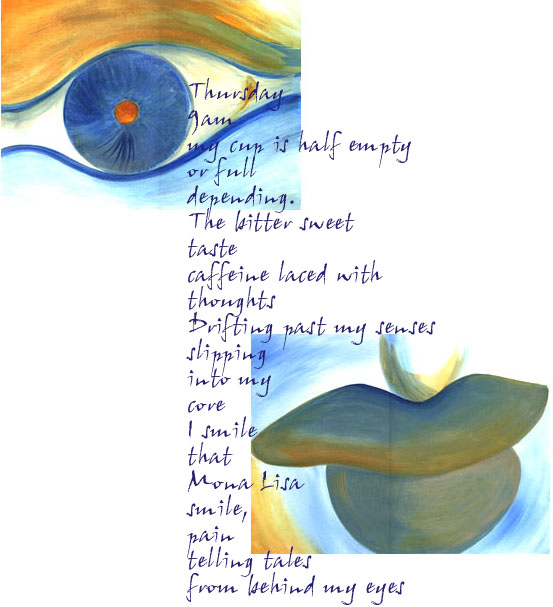 Thursday
9am
my cup is half empty
or full
depending.
The bitter sweet
taste
caffeine laced with
thoughts
Drifting past my senses
slipping
into my
core
I smile
that
Mona Lisa
smile,
pain
telling tales
from behind my eyes